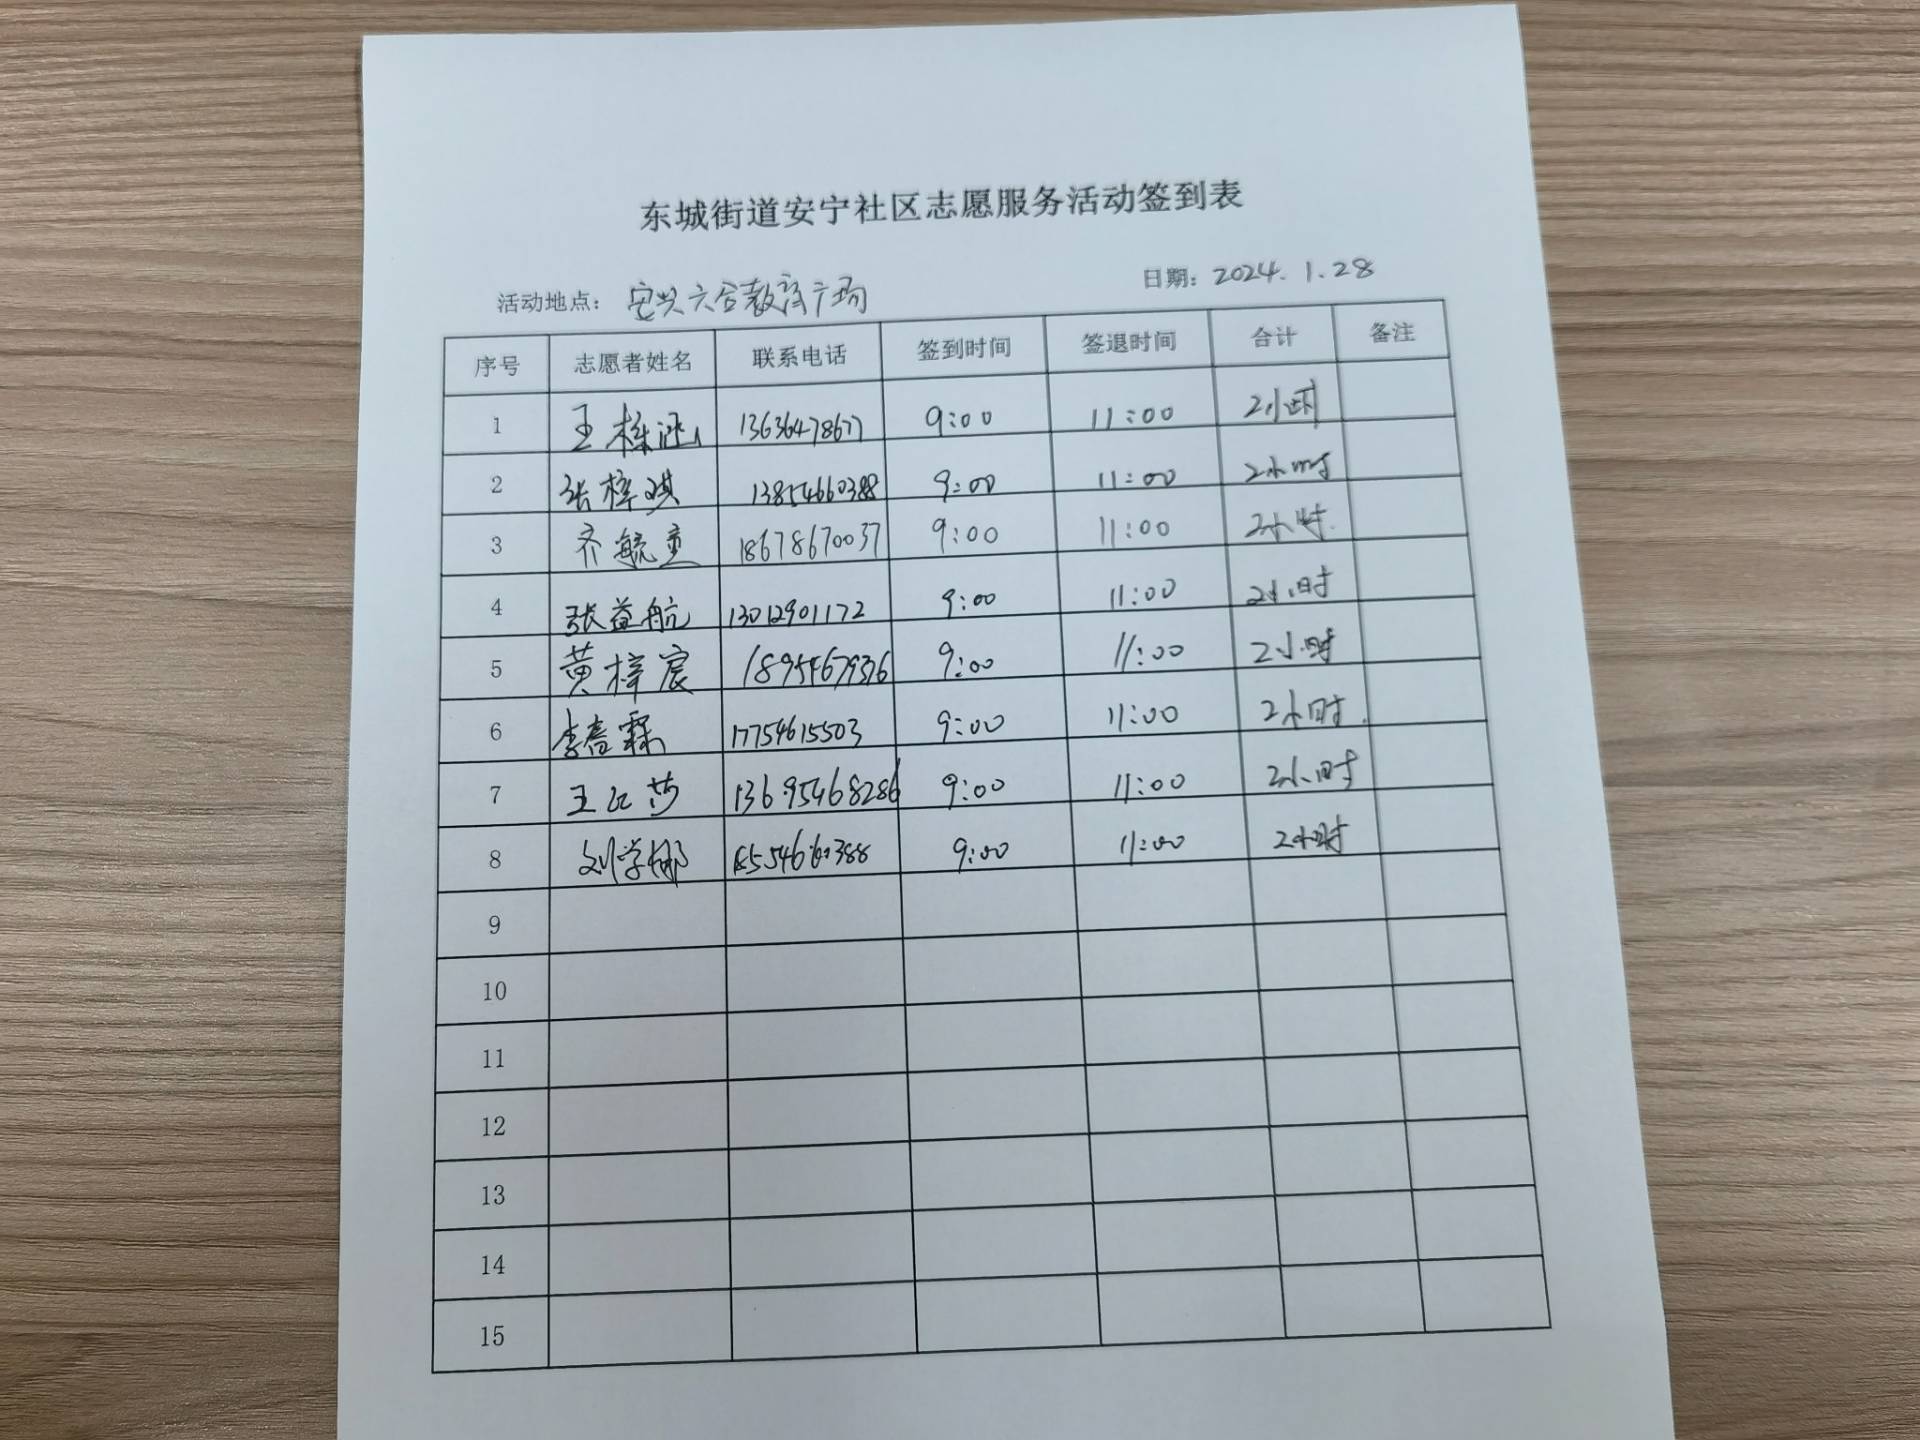 东城街道安宁社区志愿服务活动签到表
活动地点： 安兴六合教育广场 日期： 2024.1.28
序号 志愿者姓名 联系电话 签到时间 签退时间 合计 备注
1 王栎涵 13636478677 9:00 11:00 2小时
2 张梓琪 13854660388 9:00 11:00 2小时
3 齐航童 18678670037 9:00 11:00 2小时
4 张益航 13012901172 9:00 11:00 2小时
5 黄梓宸 18954679376 9:00 11:00 2小时
6 李 霖 17754615503 9:00 11:00 2小时
7 王红莎 13695468286 9:00 11:00 2小时
8 刘学娜 9:00 11:00 2小时
9
10
11
12
13
14
15